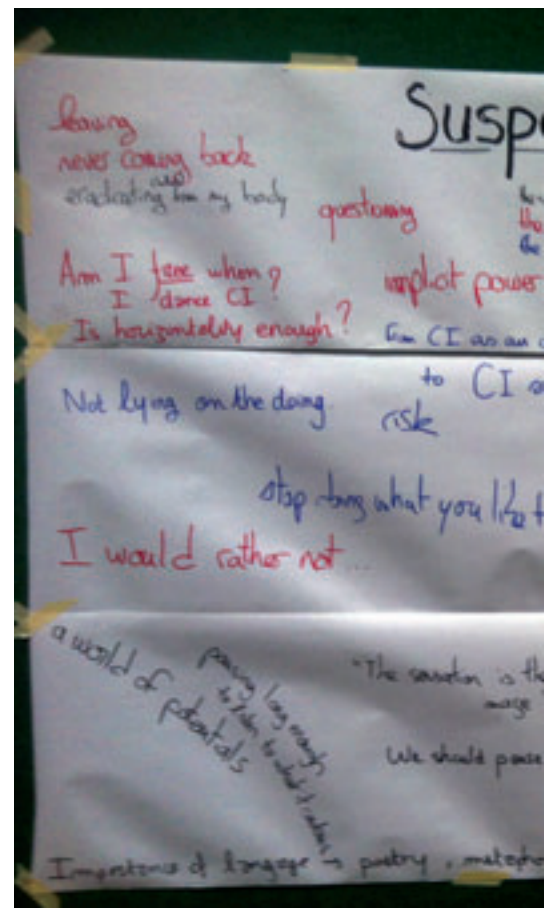 Suspe
leaving
never coming back
eradicating from my body
questioning
the
the
Am I free when?
I dance CI?
implicit power
Is horizontality enough?
from CI as an
to CI
Not lying on the doing.
risk
stop doing what you like t
I would rather not...
a world of potentials
pausing long enough
to listen to what it
"The sensation is the
image
We should pause
Importance of langage poetry, metapho